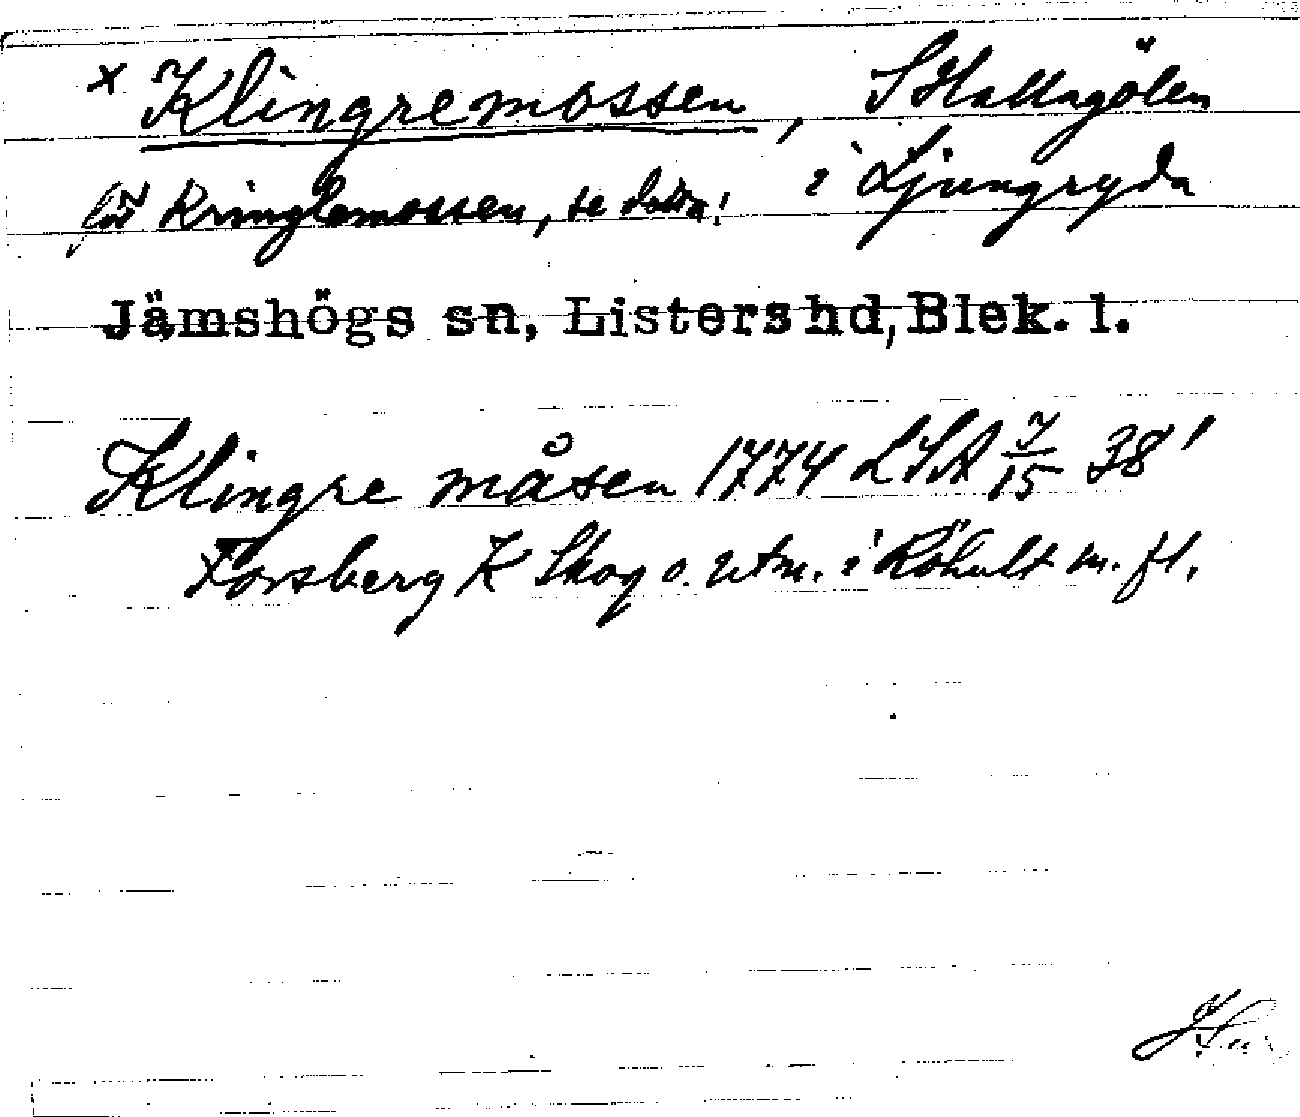 x Klingremossen, S Hallagölen
för Kringlemossen, se detta! i Ljungryda
Jämshögs sn, Listers hd, Blek. l.
Klingre måsen 1774 LSA 7/15 38'
Forsberg K Skog o. utm. i Röhult m. fl.